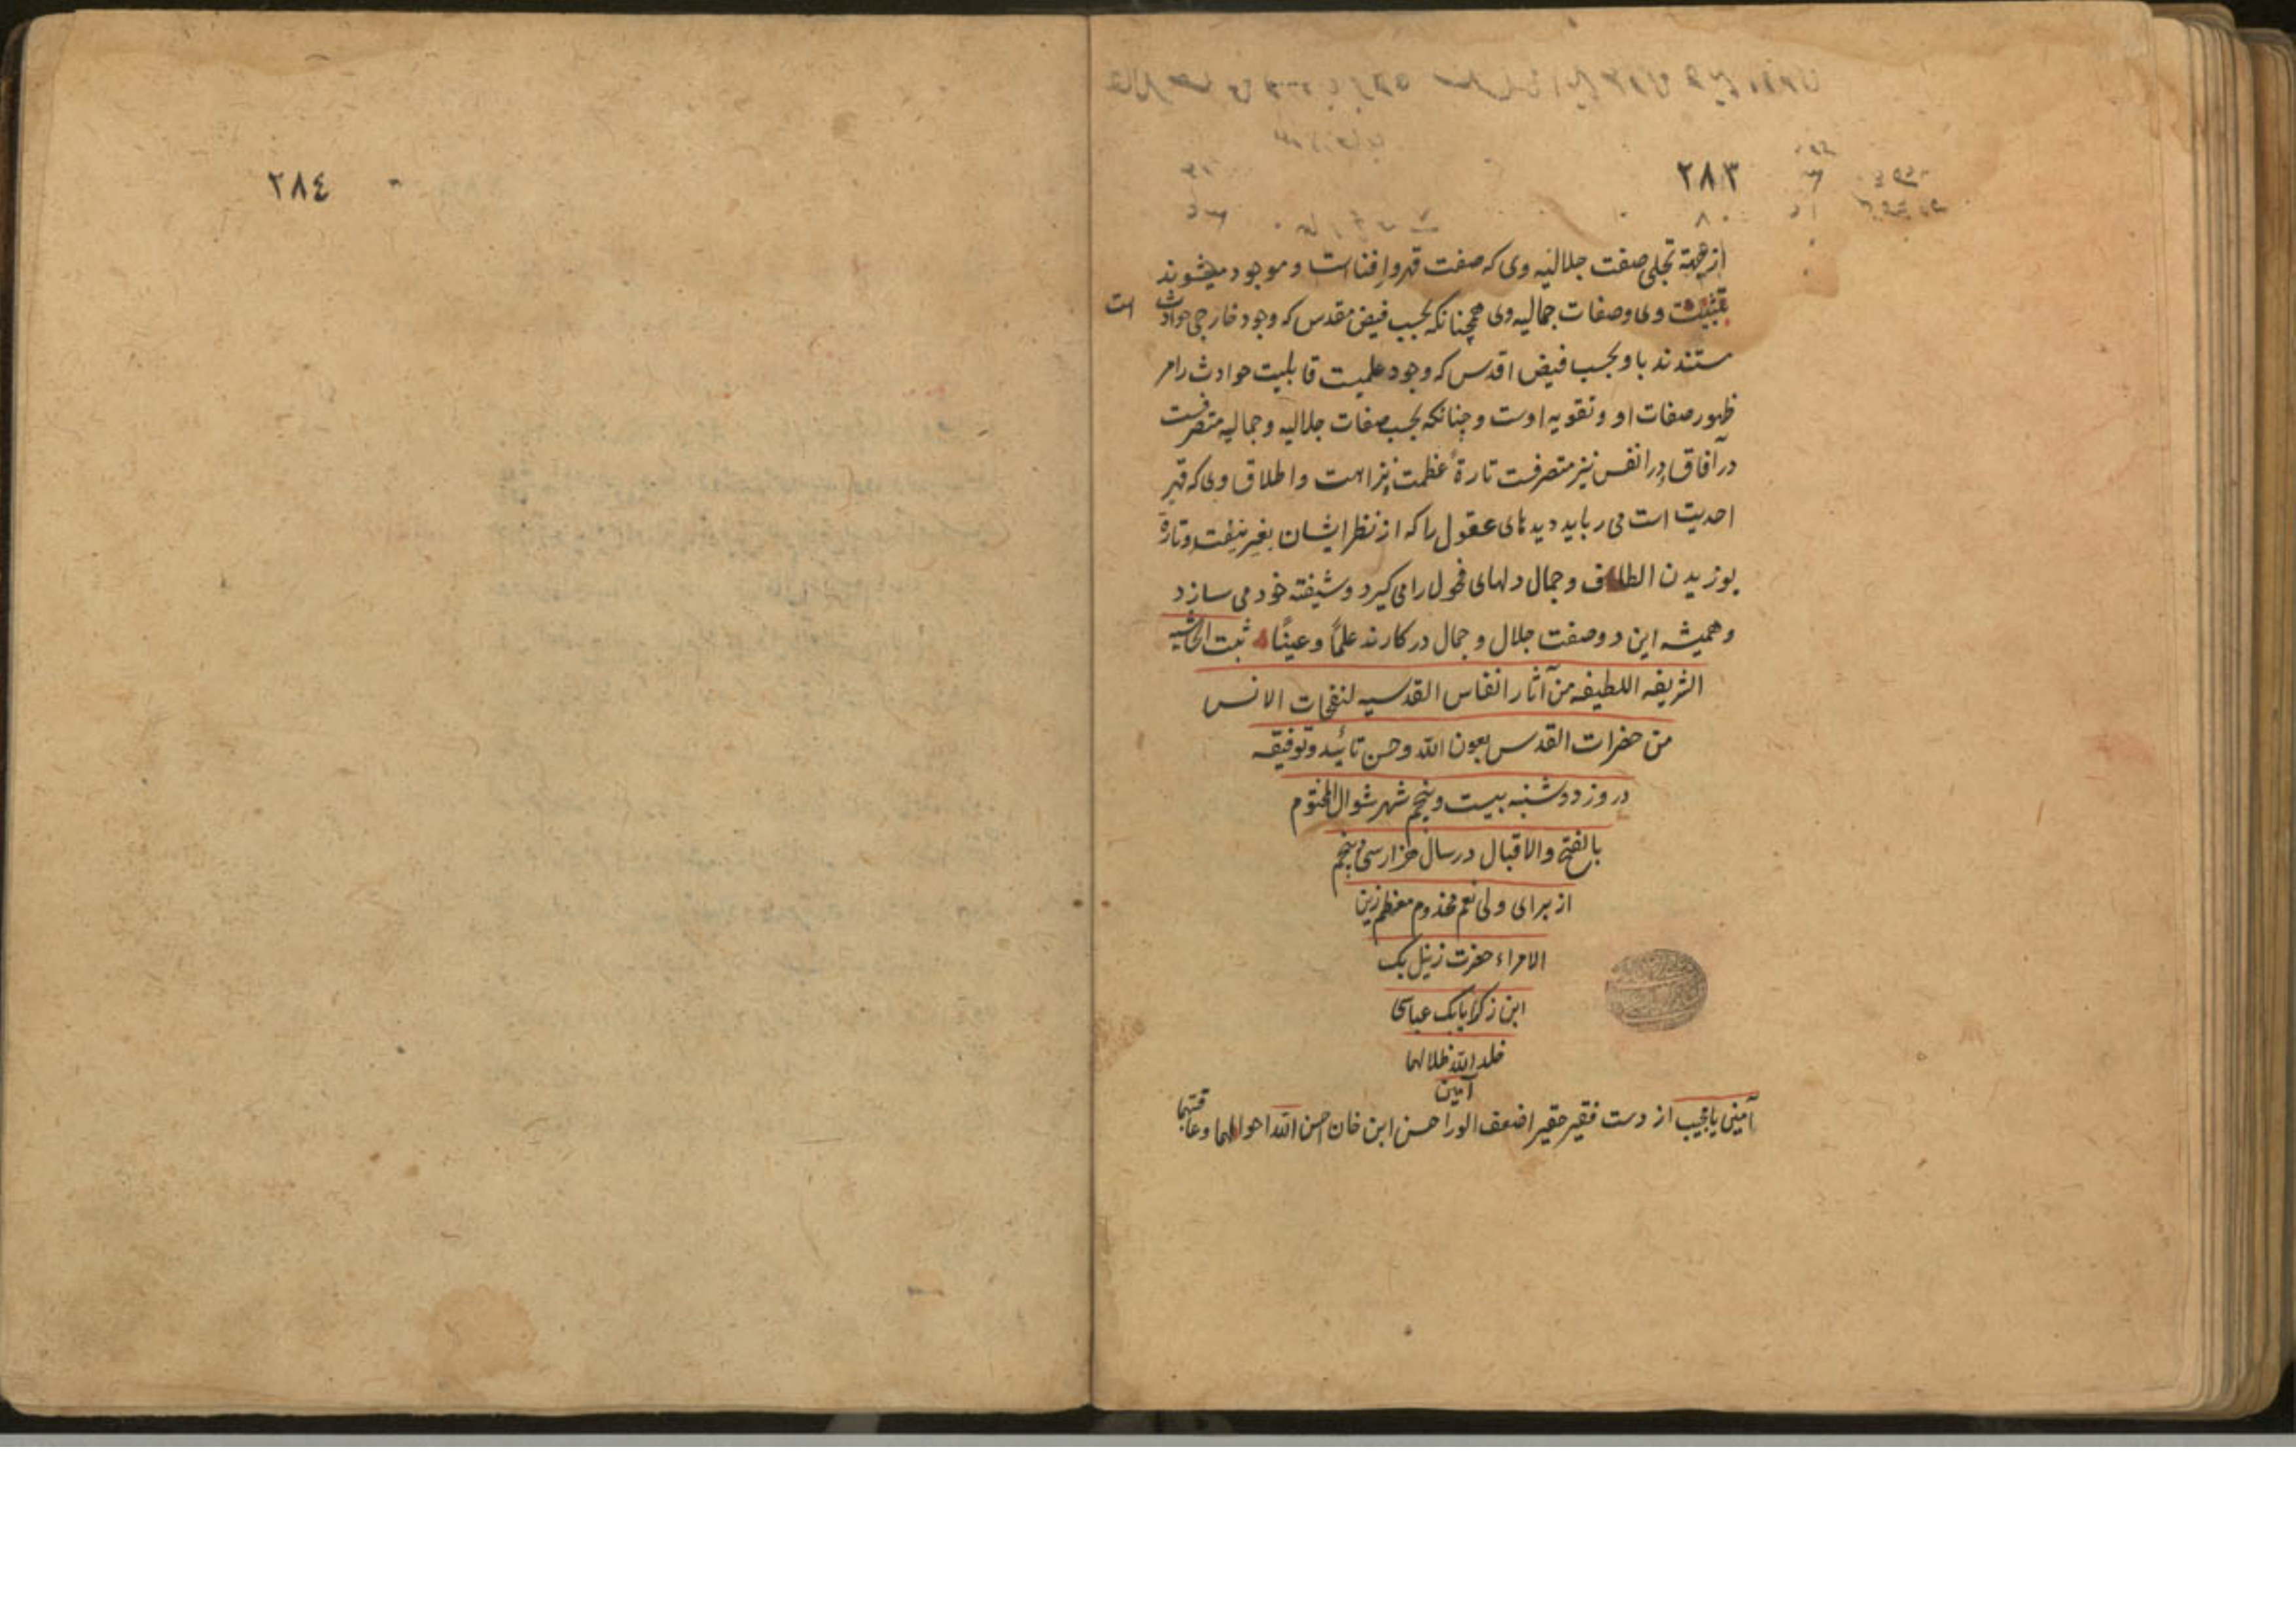 ٢٨٣
از جهة تجلی صفت جلالیه وی که صفت قهر و افنا است و موجود میشوند
وی و صفات جمالیه وی همچنانکه بحسب فیض مقدس که وجود خارجی حوادث است
مستندند باو بحسب فیض اقدس که وجود علمیت قابلیت حوادث را مر
ظهور صفات او و تقویه اوست و چنانکه بحسب صفات جلالیه و جمالیه متصرفست
در آفاق در انفس نیز متصرفست تارة عظمت نزاهت و اطلاق وی که قهر
احدیت است می رباید دیدهای عقول را که از نظر ایشان بغیر نیفتد و تارة
بوزیدن الطاف و جمال دلهای فحول را می گیرد و شیفته خود می سازد
و همیشه این دو صفت جلال و جمال در کارند علمًا و عینًا ثبت الحاشیه
الشریفه اللطیفه من آثار انفاس القدسیه لنفحات الانس
من حضرات القدس بعون الله وحسن تائید وتوفیقه
در روز دوشنبه بیست و پنجم شهر شوال المختوم
بالفتح والاقبال در سال هزار سی و پنجم
از برای ولی نعم مخدوم معظم زین
الامراء حضرت زینل بک
ابن زکریا بک عباسی
خلد الله ظلالهما
آمین
آمین یا مجیب از دست فقیر حقیر اضعف الورا حسن ابن خان احسن الله احوالهما وعاقبتهما
٢٨٤